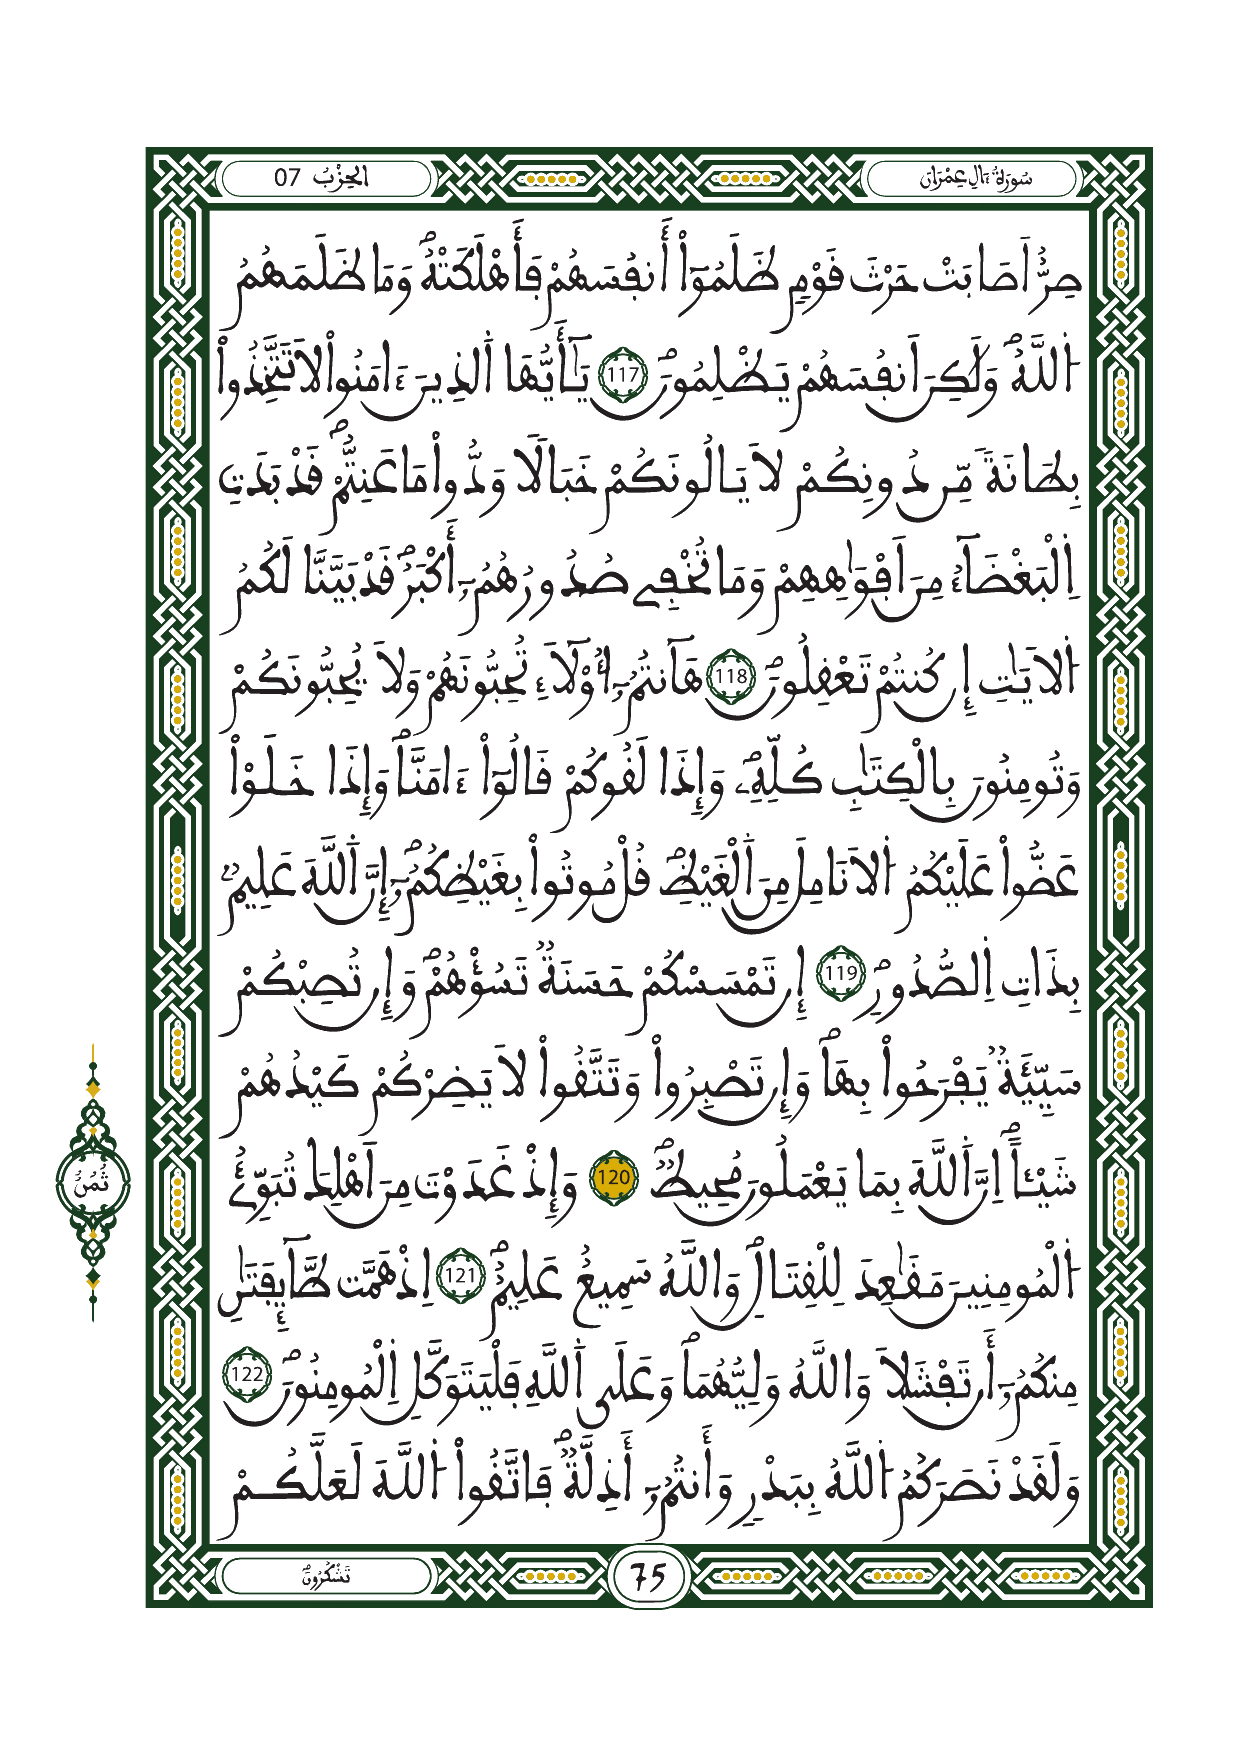 سُورَةُ ءَالِ عِمْرَانَ
الحِزْبُ 07
صِرٌّ اَصَابَتْ حَرْثَ قَوْمٖ ظَلَمُوٓاْ أَنفُسَهُمْ فَأَهْلَكَتْهُۖ وَمَا ظَلَمَهُمُ
اُ۬للَّهُۖ وَلَٰكِنَ اَنفُسَهُمْ يَظْلِمُونَۖ 117 يَٰٓأَيُّهَا اَ۬لذِينَ ءَامَنُواْ لَا تَتَّخِذُواْ
بِطَانَةٗ مِّن دُونِكُمْ لَا يَالُونَكُمْ خَبَالٗا وَدُّواْ مَا عَنِتُّمْۖ قَدْ بَدَتِ
اِ۬لْبَغْضَآءُ مِنَ اَفْوَٰهِهِمْ وَمَا تُخْفِے صُدُورُهُمُۥٓ أَكْبَرُۖ قَدْ بَيَّنَّا لَكُمُ
اُ۬لَايَٰتِ إِن كُنتُمْ تَعْقِلُونَۖ 118 هَآنتُمُۥٓ أُوْلَآءِ تُحِبُّونَهُمْ وَلَا يُحِبُّونَكُمْ
وَتُومِنُونَ بِالْكِتَٰبِ كُلِّهِۦۖ وَإِذَا لَقُوكُمْ قَالُوٓاْ ءَامَنَّاۖ وَإِذَا خَلَوْاْ
عَضُّواْ عَلَيْكُمُ اُ۬لَانَامِلَ مِنَ اَ۬لْغَيْظِۖ قُلْ مُوتُواْ بِغَيْظِكُمُۥٓۖ إِنَّ اَ۬للَّهَ عَلِيمُۢ
بِذَاتِ اِ۬لصُّدُورِۖ 119 إِن تَمْسَسْكُمْ حَسَنَةٞ تَسُؤْهُمْۖ وَإِن تُصِبْكُمْ
سَيِّئَةٞ يَفْرَحُواْ بِهَاۖ وَإِن تَصْبِرُواْ وَتَتَّقُواْ لَا يَضِرْكُمْ كَيْدُهُمْ
شَيْـًٔاۖ اِنَّ اَ۬للَّهَ بِمَا يَعْمَلُونَ مُحِيطٞۖ 120 وَإِذْ غَدَوْتَ مِنَ اَهْلِكَ تُبَوِّئُ
اُ۬لْمُومِنِينَ مَقَٰعِدَ لِلْقِتَالِۖ وَاللَّهُ سَمِيعٌ عَلِيمٌۖ 121 اِذْ هَمَّت طَّآئِفَتَٰنِ
مِنكُمُۥٓ أَن تَفْشَلَا وَاللَّهُ وَلِيُّهُمَاۖ وَعَلَي اَ۬للَّهِ فَلْيَتَوَكَّلِ اِ۬لْمُومِنُونَۖ 122
وَلَقَدْ نَصَرَكُمُ اُ۬للَّهُ بِبَدْرٖ وَأَنتُمُۥٓ أَذِلَّةٞۖ فَاتَّقُواْ اُ۬للَّهَ لَعَلَّكُمْ
ثُمُنُ
تَشْكُرُونَۖ
75